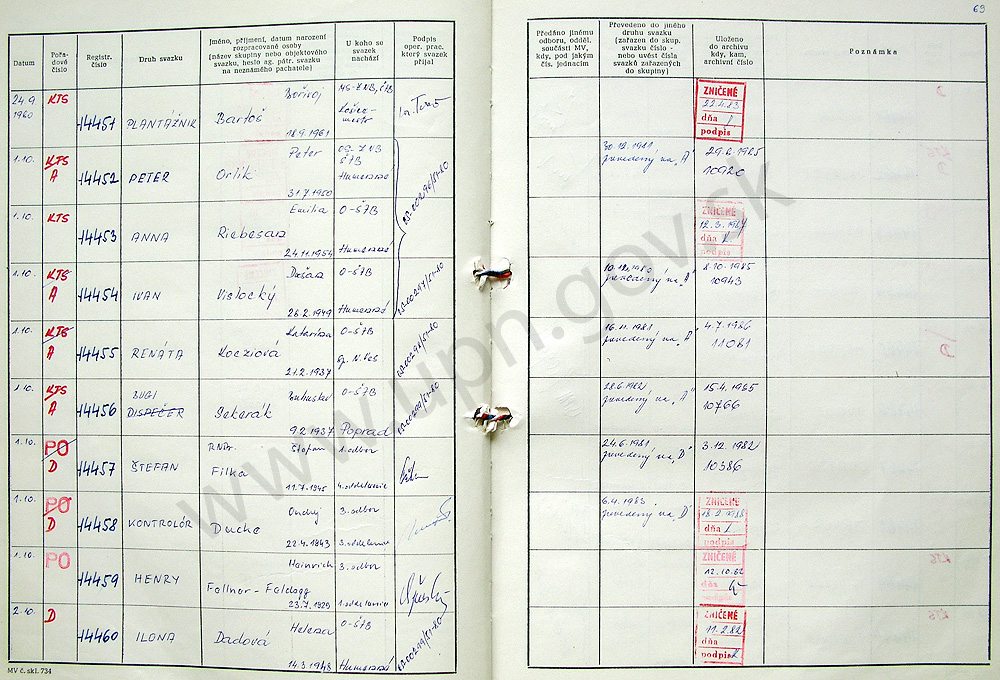 69
Datum
Pořa-
dové
číslo
Registr.
číslo
Druh svazku
Jméno, příjmení, datum narození
rozpracované osoby
(název skupiny nebo objektového
svazku, heslo ag. pátr. svazku
na neznámého pachatele)
U koho se
svazek
nachází
Podpis
oper. prac.
který svazek
přijal
Předáno jinému
odboru, odděl.
součásti MV,
kdy, pod jakým
čís. jednacím
Převedeno do jiného
druhu svazku
(zařazen do skup.
svazku číslo -
nebo uvést čísla
svazků zařazených
do skupiny)
Uloženo
do archivu
kdy, kam,
archivní číslo
Poznámka
24.9.
1980
KTS
14451
PLANTÁŽNIK
Bořivoj
Bartoš
18.9.1961
ZNIČENÉ
22.4.83
dňa
podpis
1.10.
KTS
A
14452
PETER
Peter
Orlík
31.7.1950
Humenné
30.12.1981
prevedený na "A"
29.2.1985
10920
1.10.
KTS
14453
ANNA
Emília
24.11.1954
O-ŠTB
Humenné
ZNIČENÉ
12.3.1987
dňa
podpis
1.10.
KTS
A
14454
IVAN
Dušan
Vislocký
26.2.1949
O-ŠTB
Humenné
10.12.1980
prevedený na "A"
2.10.1985
10943
1.10.
KTS
A
14455
RENÁTA
Katarína
Kocziová
21.2.1937
O-ŠTB
Sp. N. Ves
16.11.1981
prevedený na "A"
4.7.1986
11081
1.10.
KTS
A
14456
BUGI
DISPEČER
Bohuslav
Sekerák
9.2.1937
O-ŠTB
Poprad
28.6.1982
prevedený na "A"
15.4.1985
10766
1.10.
PO
D
14457
ŠTEFAN
RNDr. Štefan
Filka
11.7.1945
1.odbor
4.oddelenie
24.6.1981
prevedený na "D"
3.12.1982
10386
1.10.
PO
D
14458
KONTROLÓR
Ondrej
Ducho
22.4.1943
3.odbor
3.oddelenie
6.4.1983
prevedený na "D"
ZNIČENÉ
18.2.1988
dňa
podpis
1.10.
PO
14459
HENRY
Heinrich
Fallnor-Faldogg
23.7.1929
3.odbor
1.oddelenie
ZNIČENÉ
12.10.82
dňa
podpis
2.10.
D
14460
ILONA
Helena
Dadová
14.3.1948
O-ŠTB
Humenné
ZNIČENÉ
11.2.82
dňa
podpis
MV č. skl. 734
www.upn.gov.sk